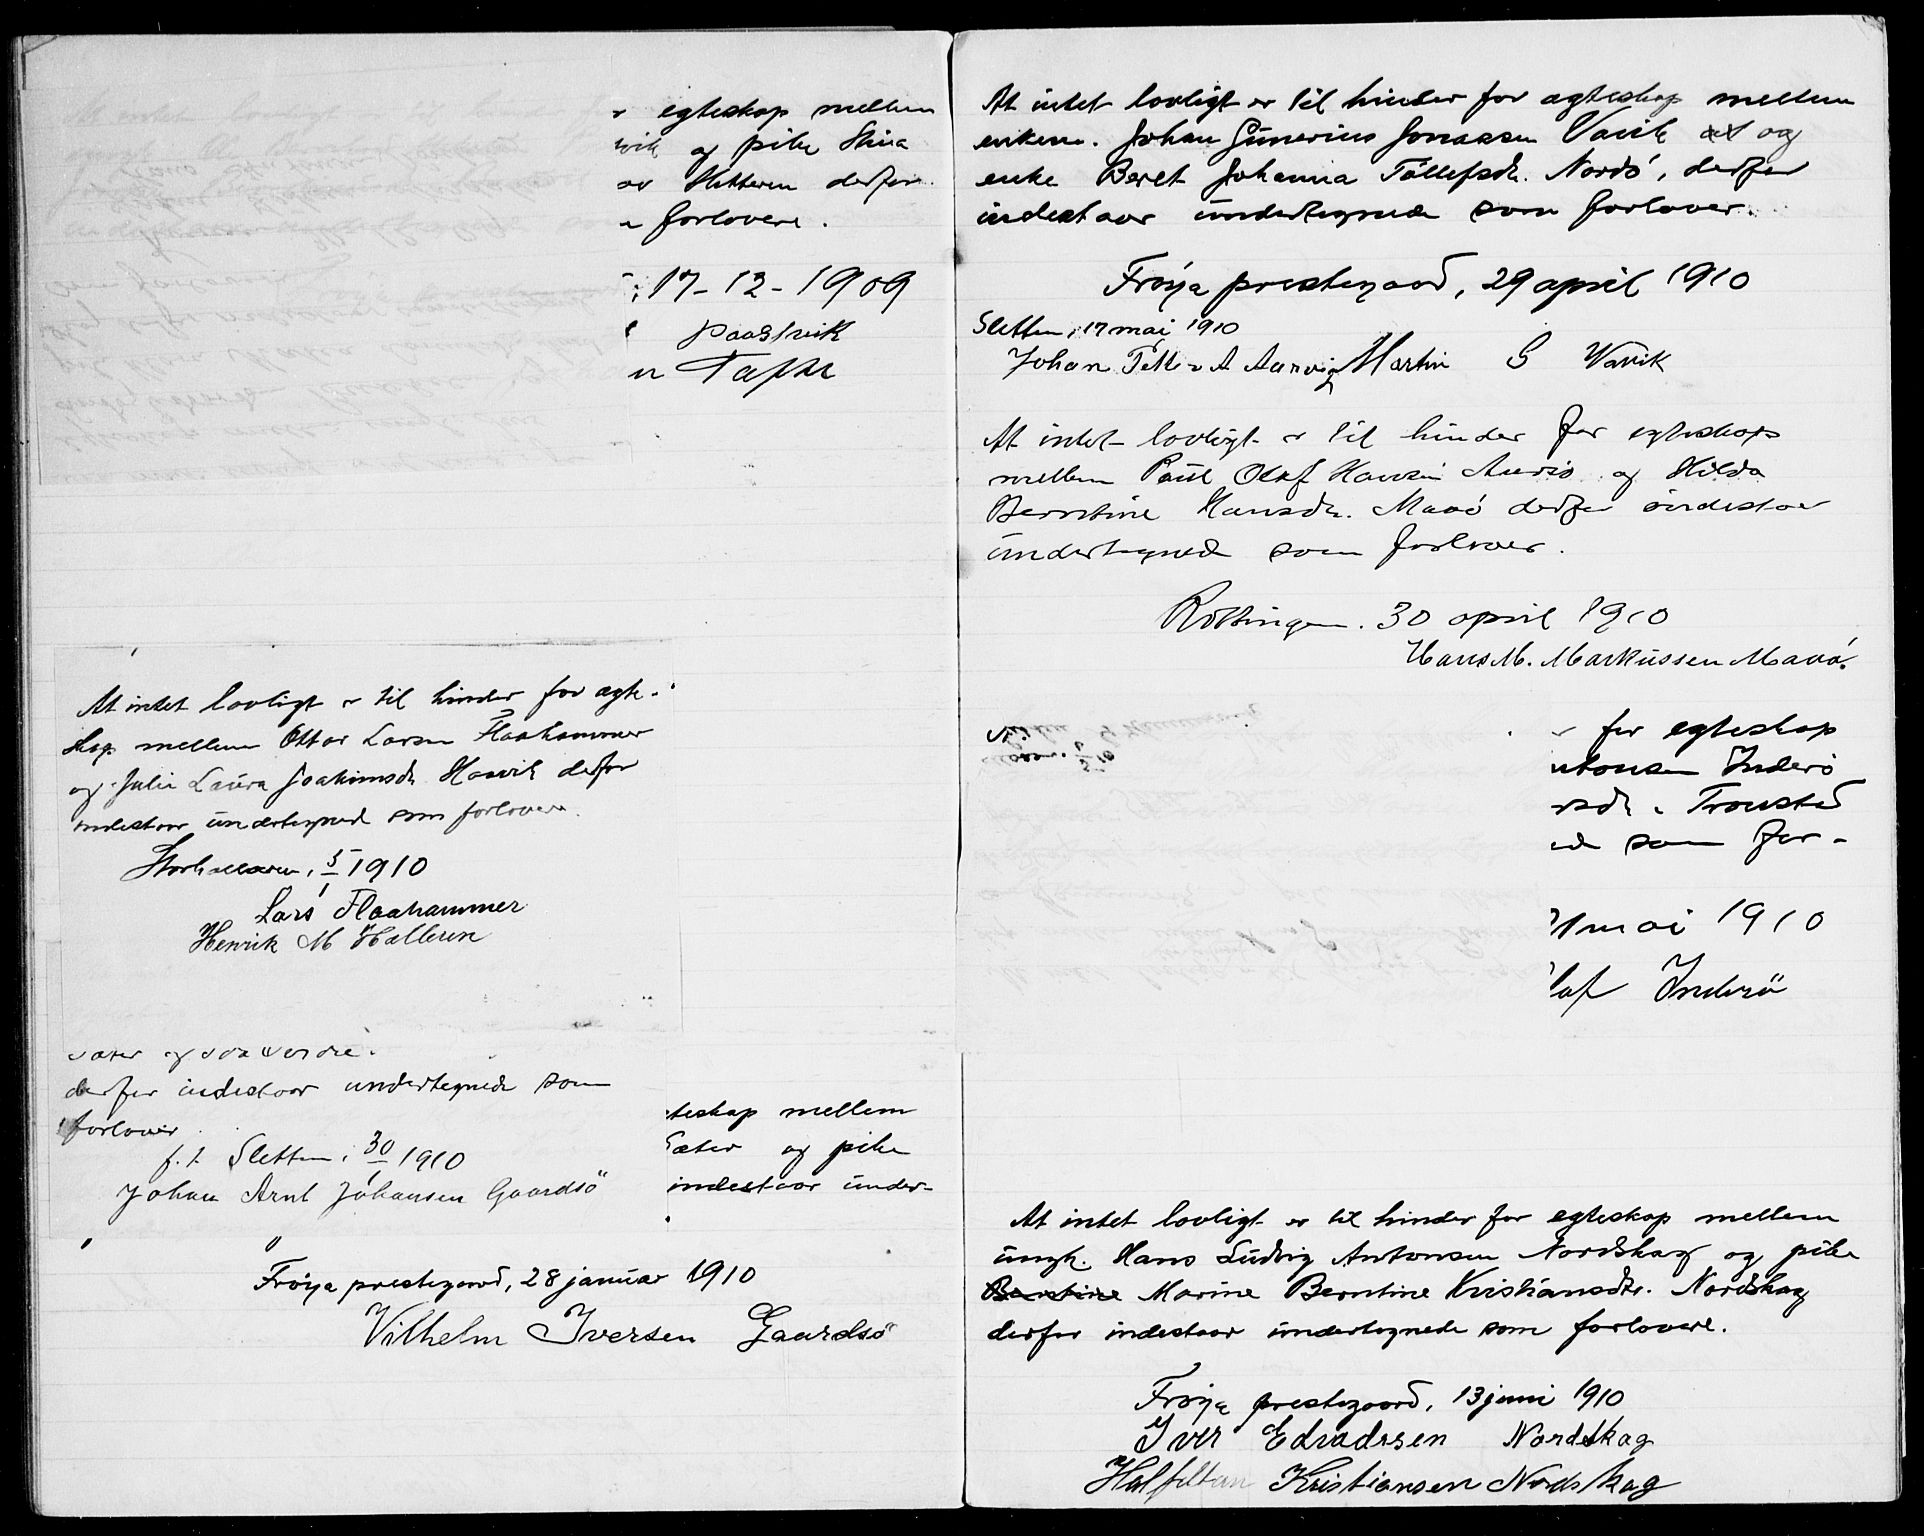 r egteskap mellem
vik og pike Stina
av Hitteren derfor
e forlovere.
17-12-1909
Paastvik
n
At intet lovligt er til hinder for ægte-
skap mellem Ottar Larsen Flaahammer
og Julie Laura Joakimsdr. Haavik derfor
indestaar undertegnede som forlovere.
Storhallaren, 5/1 1910
Lars Flaahammer
Henrik M Halleren
sæter og
derfor indestaar undertegnede som
forlover
f. t. Sletten, 30/1 1910
Johan Arnt Johansen Gaardsö
teskap mellem
Sæter og pike
indestaar under-
Frøya prestegaard, 28 januar 1910
Vilhelm Iversen Gaardsö
At intet lovligt er til hinder for ægteskap mellem
enkem. Johan Gunerius Jonassen Vavik at og
enke Beret Johanna Tøllefsdr. Nordö, derfor
indestaar undertegnede som forlover.
Frøya prestegaard, 29 april 1910
Sletten, 17 mai 1910
Johan A Aarvig Martin G Wavik
At intet lovligt er til hinder for egteskap
mellem Paul Olaf Hansen og Hilda
Berntine Hansdr. Mausö derfor indestaar
undertegnede som forlover.
Rottingen. 30 april 1910
Hans M. Markussen Mausö.
At
r for egteskap
ntonsen Inderö
rsdr.
ede som for-
1 mai 1910
laf Inderö
At intet lovligt er til hinder for egteskap mellem
ungk. Hans Ludvig Antonsen Nordskag og pike
Berntine Marine Berntine Kristiansdtr. Nordskag
derfor indestaar undertegnede som forlovere.
Frøya prestegaard, 13 juni 1910
Iver Edvadrsen Nordskag
Halfdan Kristiansen Nordskag